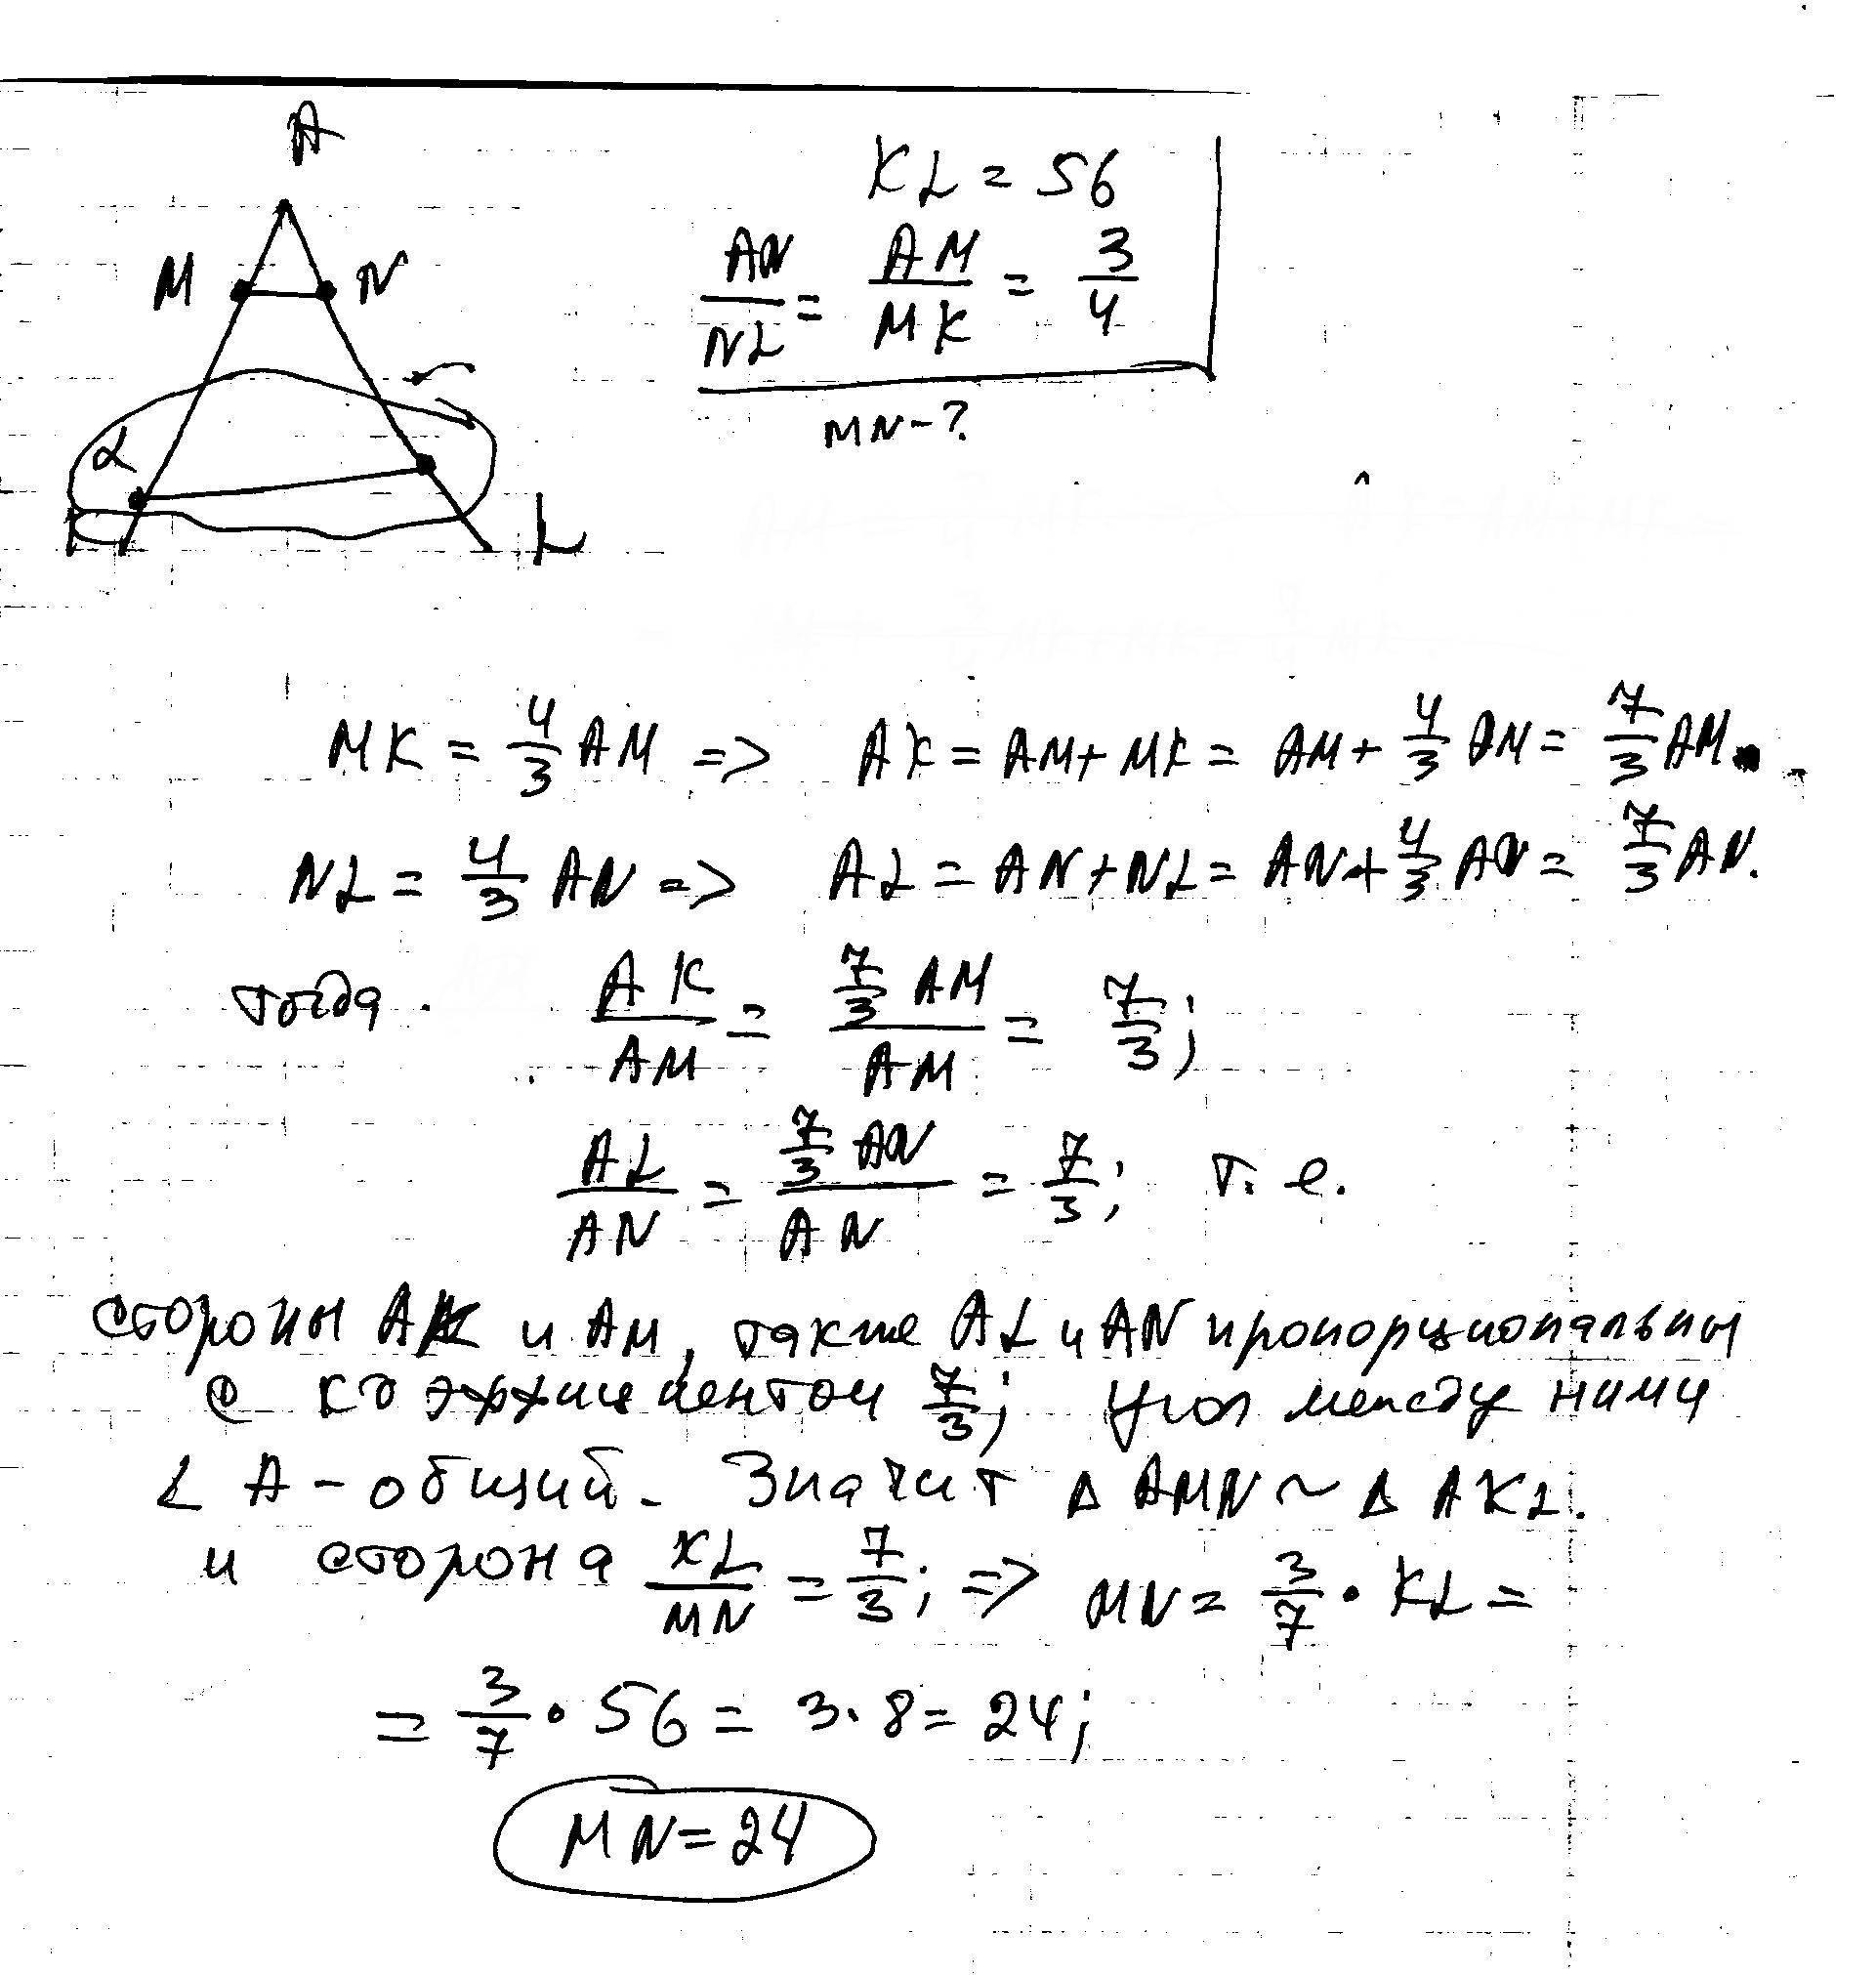 A
M N
α
K L
KL = 56
AN/NL = AM/MK = 3/4
MN-?
MK = 4/3 AM => AK = AM + MK = AM + 4/3 AM = 7/3 AM.
NL = 4/3 AN => AL = AN + NL = AN + 4/3 AN = 7/3 AN.
тогда. AK/AM = 7/3 AM/AM = 7/3;
AL/AN = 7/3 AN/AN = 7/3; т. е.
стороны AK и AM, также AL и AN пропорциональны
с коэффициентом 7/3; угол между ними
∠ A - общий. Значит Δ AMN ~ Δ AKL.
и сторона KL/MN = 7/3; => MN = 3/7 • KL =
= 3/7 • 56 = 3·8 = 24;
MN = 24